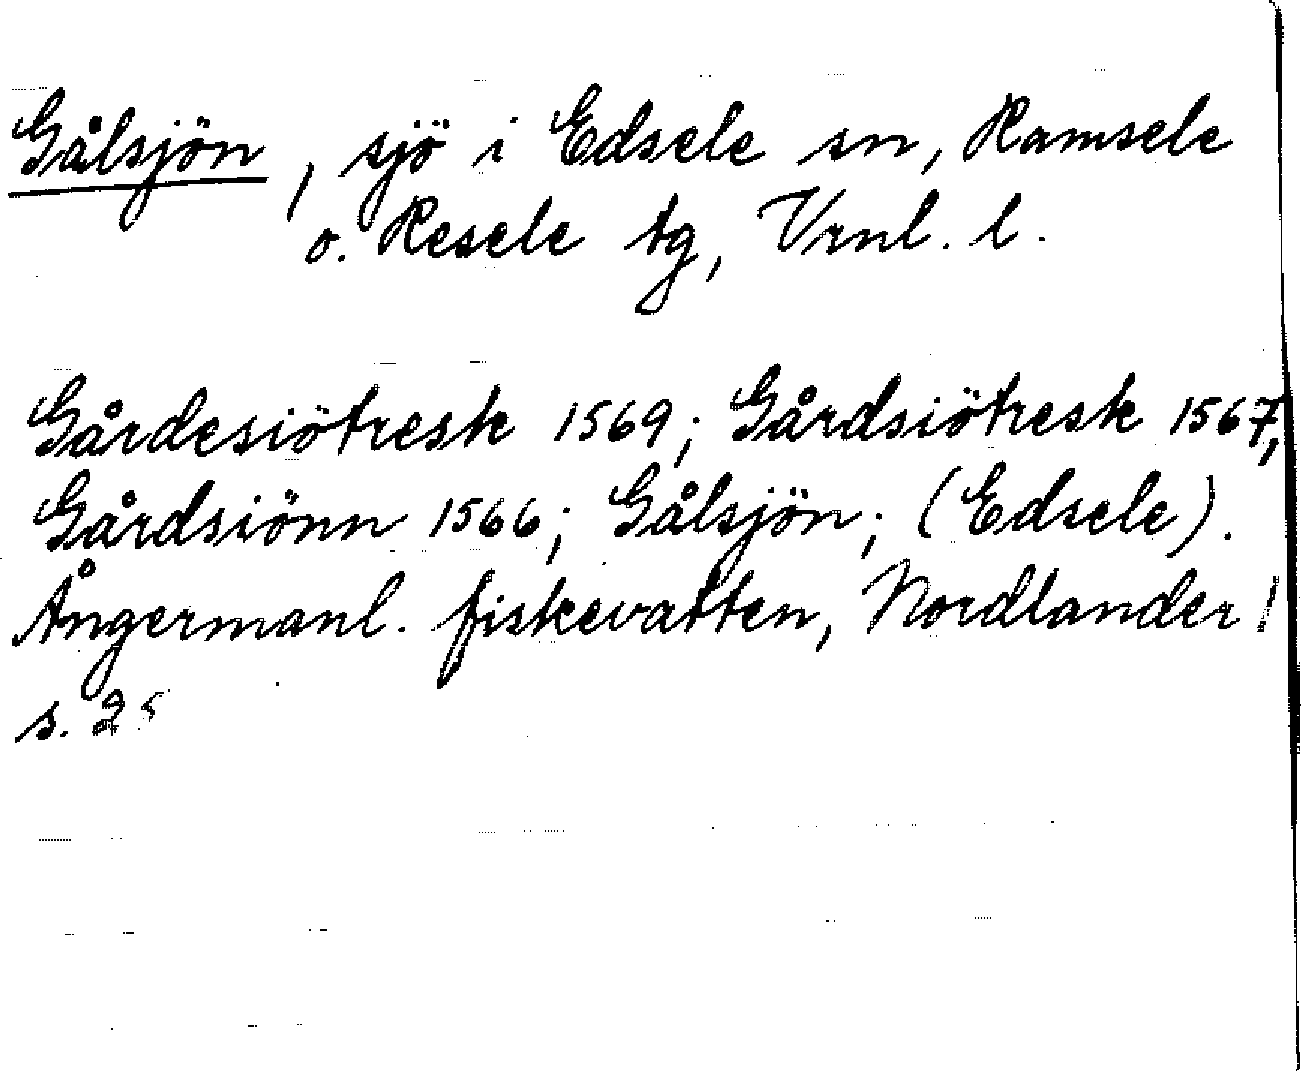 Gålsjön, sjö i Edsele sn, Ramsele
o. Resele tg, Vrnl. l.
Gårdesiötresk 1569; Gårdsiötresk 1567,
Gårdsiönn 1566; Gålsjön; (Edsele).
Ångermanl. fiskevatten, Nordlander
s. 25